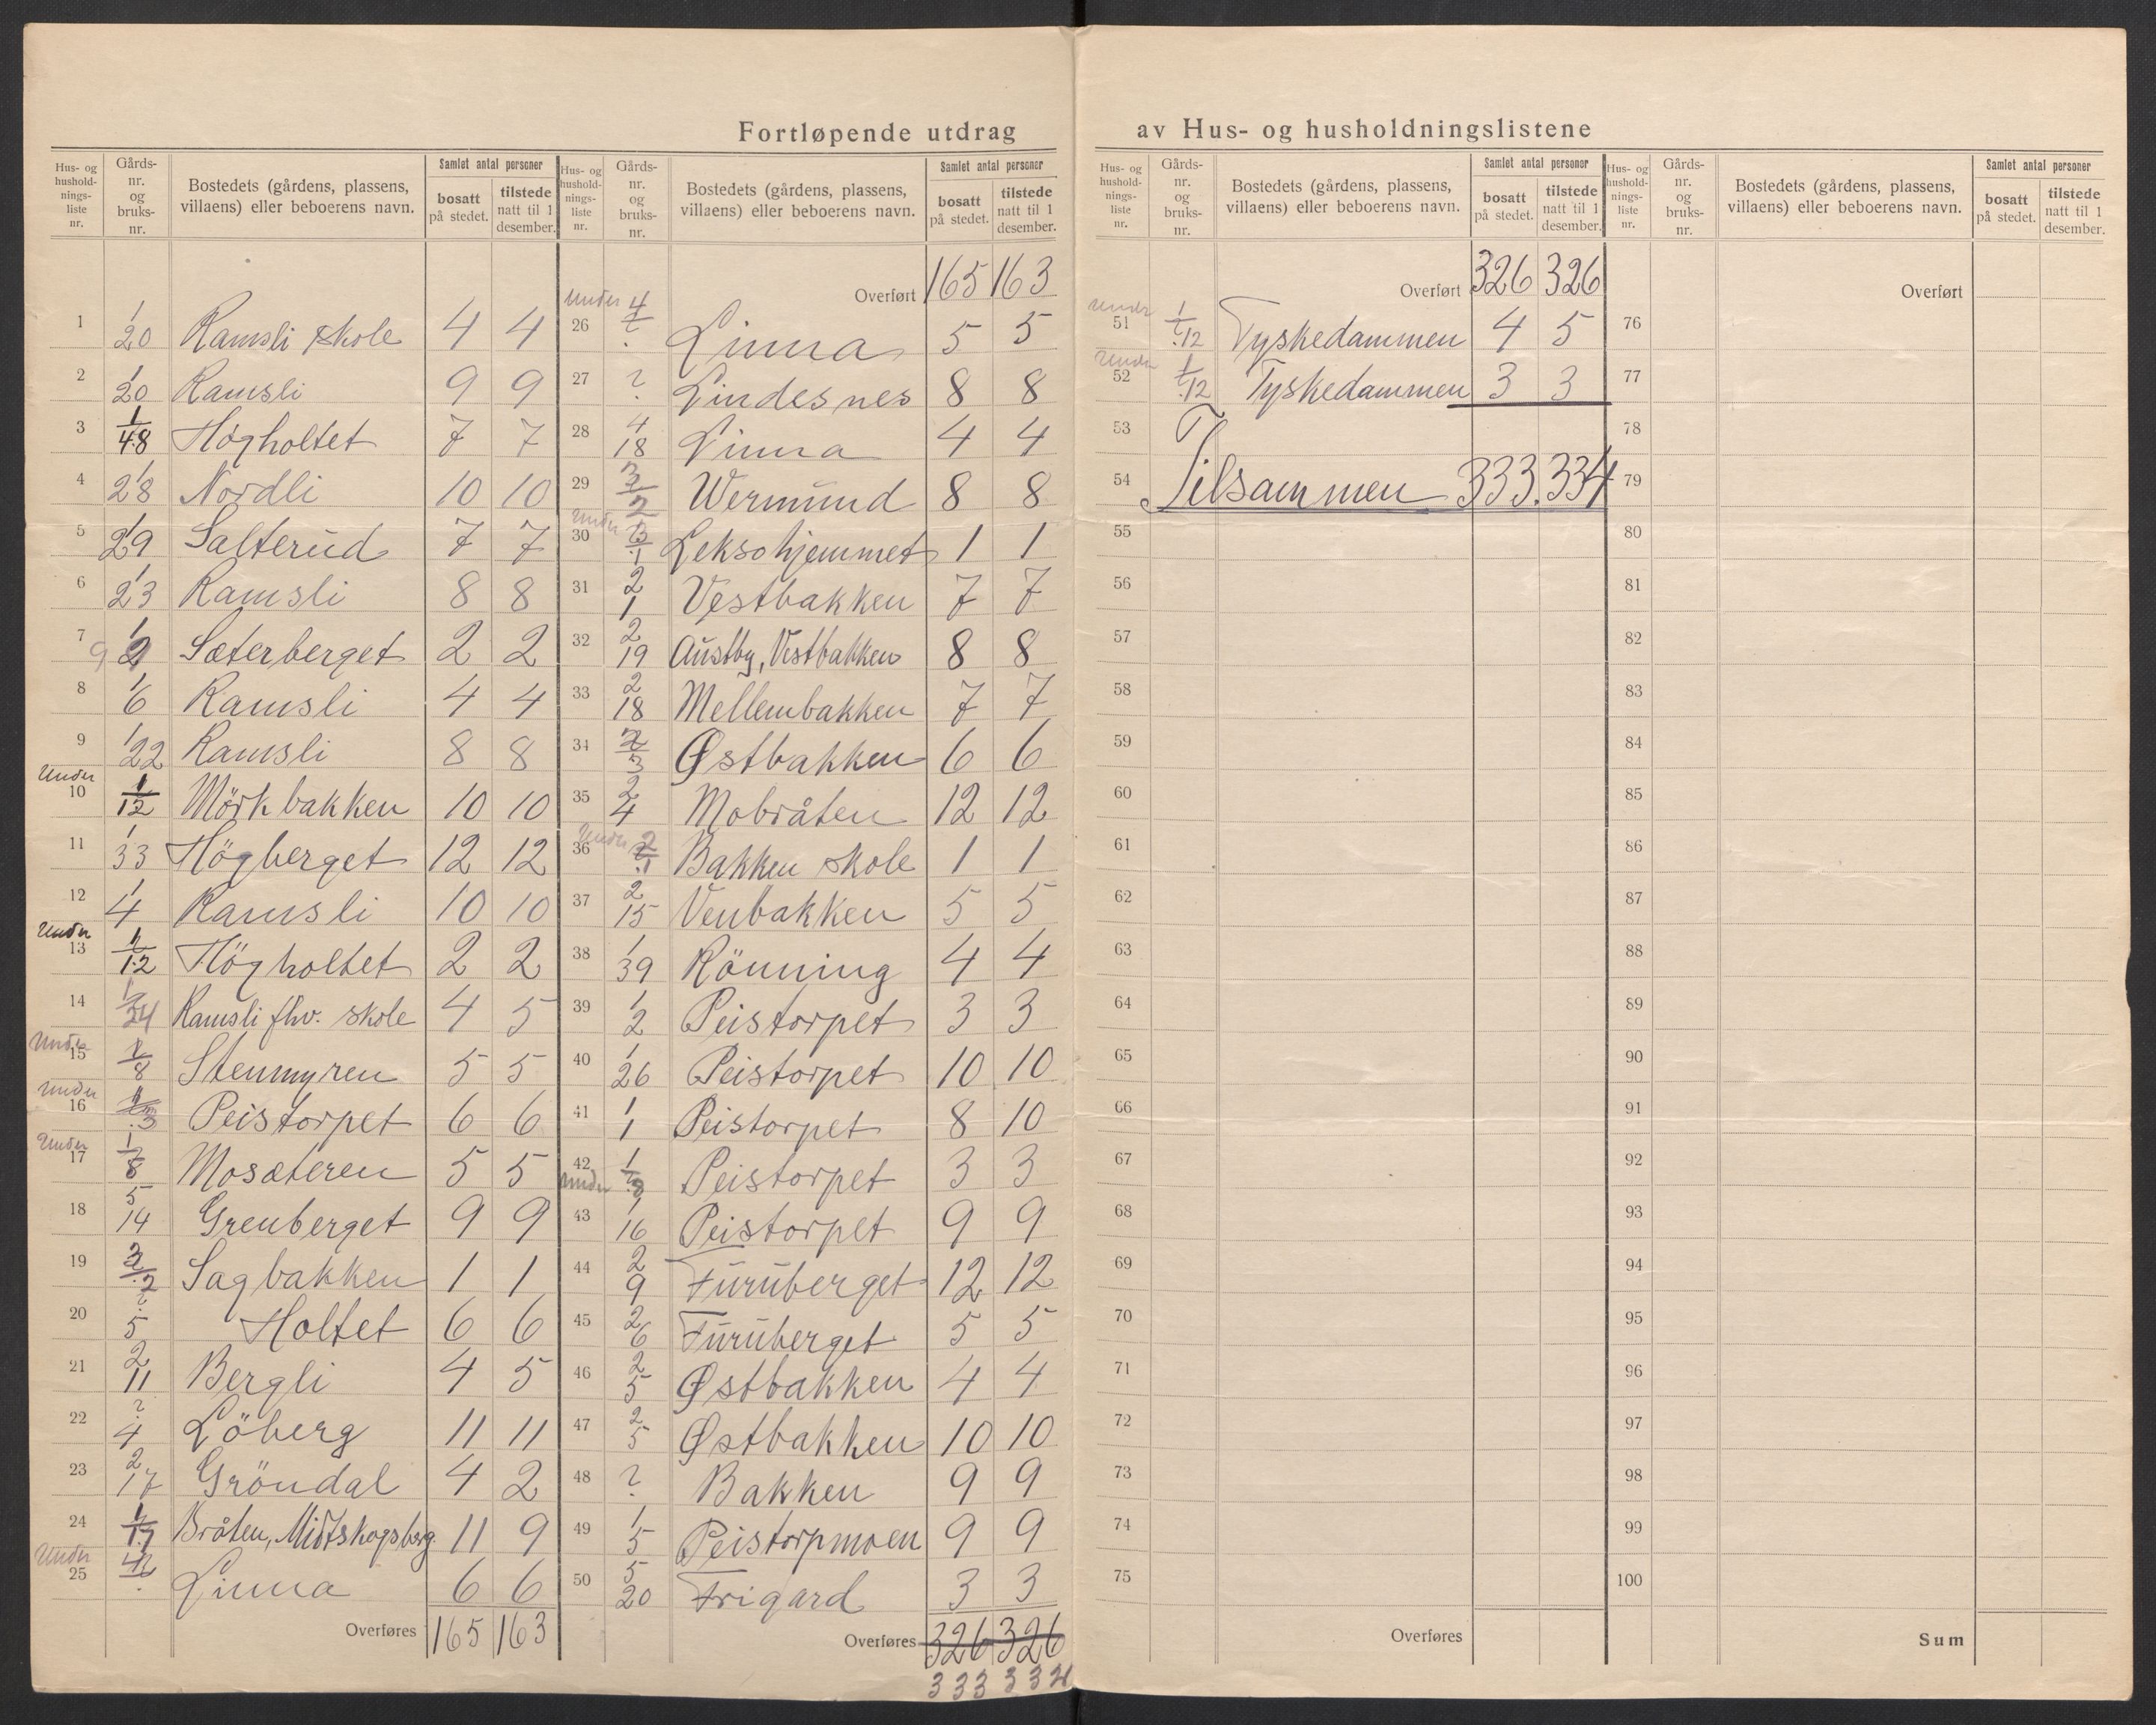 Fortløpende utdrag av Hus- og husholdningslistene
Hus- og husholdningsliste nr. | Gårdsnr. og bruksnr. | Bostedets (gårdens, plassens, villaens) eller beboerens navn. | Samlet antal personer | bosatt på stedet. | tilstede natt til 1 desember.
1 1/20 Ramsli skole 4 4
2 1/20 Ramsli 9 9
3 1/48 Högholtet 7 7
4 1/28 Nordli 10 10
5 1/29 Salterud 7 7
6 1/23 Ramsli 8 8
7 1/9 Sæterberget 2 2
8 1/6 Ramsli 4 4
9 1/22 Ramsli 8 8
Under
10 1/12 Mörkbakken 10 10
11 1/33 Högberget 12 12
12 1/4 Ramsli 10 10
Under
13 1/12 Högholtet 2 2
14 1/34 Ramsli fhv. skole 4 5
Under
15 1/8 Stenmyren 5 5
Under
16 1/3 Peistorpet 6 6
Under
17 1/8 Mosæteren 5 5
18 5/14 Grenberget 9 9
19 2/2 Sagbakken 1 1
20 ?/5 Holtet 6 6
21 2/11 Bergli 4 5
22 ?/4 Löberg 11 11
23 2/17 Gröndal 4 2
24 1/17 Bråten, Midtskogsberg. 11 9
Under
25 4/ Linna 6 6
Overføres 165 163
Hus- og husholdningsliste nr. | Gårdsnr. og bruksnr. | Bostedets (gårdens, plassens, villaens) eller beboerens navn. | Samlet antal personer | bosatt på stedet. | tilstede natt til 1 desember.
Overført 165 163
Under
26 4/? Linna 5 5
27 ? Lindesnes 8 8
28 4/18 Linna 4 4
29 3/2 Wermund 8 8
Under
30 3/1 Leksohjemmet 1 1
31 2/1 Vestbakken 7 7
32 2/19 Austby, Vestbakken 8 8
33 2/18 Mellembakken 7 7
34 2/3 Østbakken 6 6
35 2/4 Mobråten 12 12
Under
36 2/1 Bakken skole 1 1
37 2/15 Venbakken 5 5
38 1/39 Rönning 4 4
39 1/2 Peistorpet 3 3
40 1/26 Peistorpet 10 10
41 1/1 Peistorpet 8 10
42 1/8 Peistorpet 3 3
Under
43 1/16 Peistorpet 9 9
44 2/9 Furuberget 12 12
45 2/6 Furuberget 5 5
46 2/5 Østbakken 4 4
47 2/5 Østbakken 10 10
48 ? Bakken 9 9
49 1/5 Peistorpmoen 9 9
50 5/20 Frigard 3 3
Overføres 326 326
333 334
Hus- og husholdningsliste nr. | Gårdsnr. og bruksnr. | Bostedets (gårdens, plassens, villaens) eller beboerens navn. | Samlet antal personer | bosatt på stedet. | tilstede natt til 1 desember.
Overført 326 326
Under
51 1/12 Tyskedammen 4 5
Under
52 1/12 Tyskedammen 3 3
53
54 Tilsammen 333. 334
55
56
57
58
59
60
61
62
63
64
65
66
67
68
69
70
71
72
73
74
75
Overføres
Hus- og husholdningsliste nr. | Gårdsnr. og bruksnr. | Bostedets (gårdens, plassens, villaens) eller beboerens navn. | Samlet antal personer | bosatt på stedet. | tilstede natt til 1 desember.
Overført
76
77
78
79
80
81
82
83
84
85
86
87
88
89
90
91
92
93
94
95
96
97
98
99
100
Sum